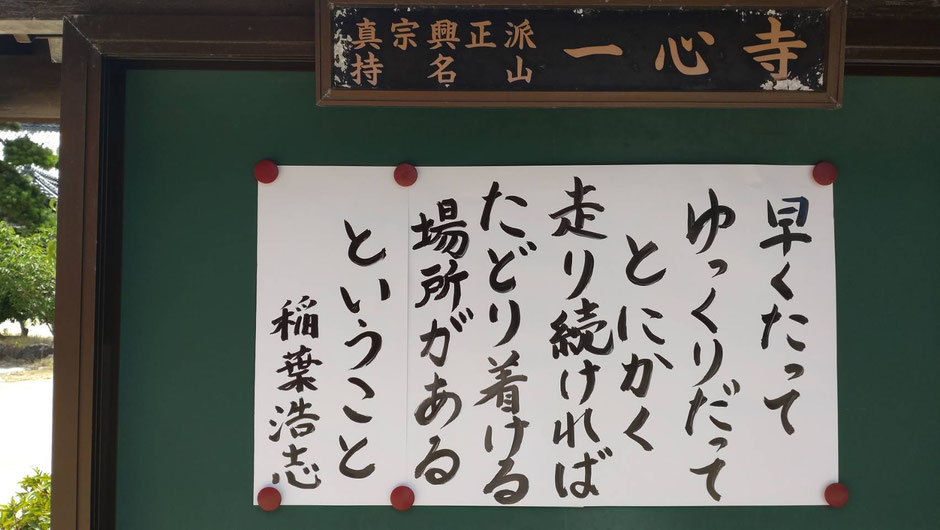 真宗興正派
持名山
一心寺
早くたって
ゆっくりだって
とにかく
走り続ければ
たどり着ける
場所がある
ということ
稲葉浩志